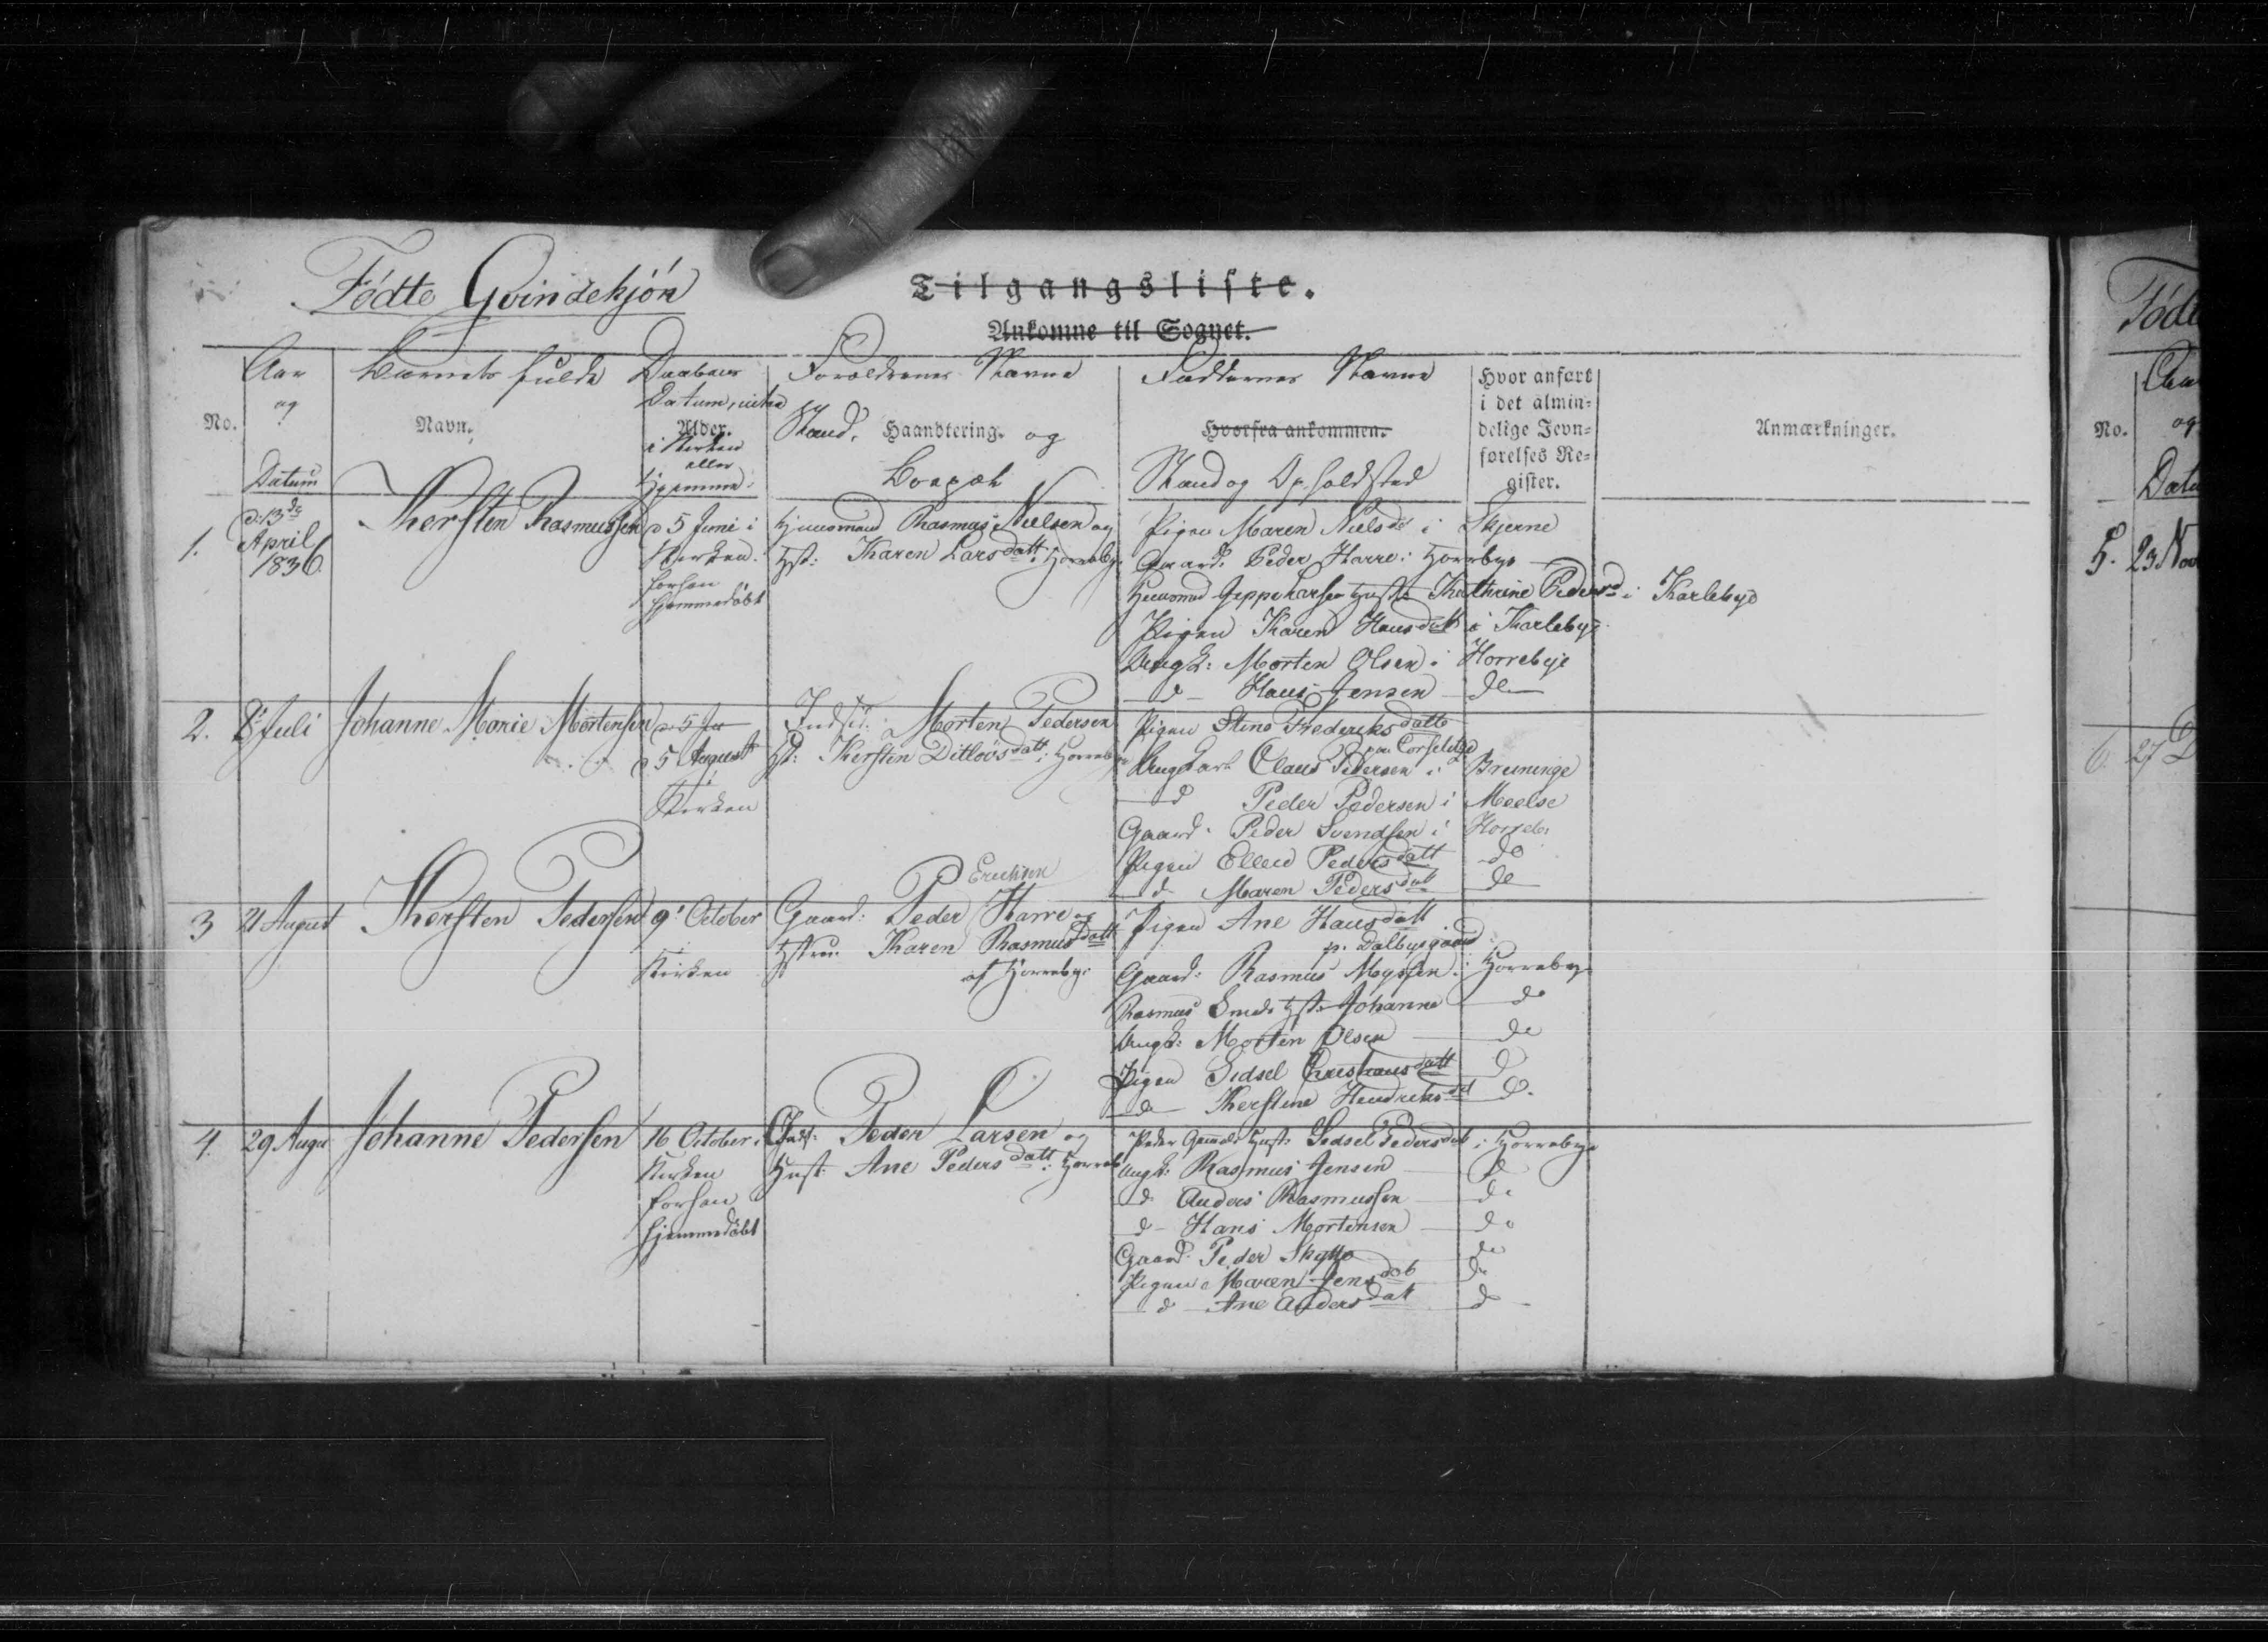 Fødte Qvindekjøn
Tilgangsliste.
Ankomne til Sognet.
No.
Aar
og
Datum
Barnets fulde
Navn.
Daabens
Datum, enten
Alder.
i Kirken
eller
hjemme
Forældrenes Navne
Stand, Haandtering. og
Bopæl
Faddernes Navne
Hvorfra ankommen.
Stand og Opholdsted
Hvor anført
i det almin-
delige Jevn-
førelses Re-
gister.
Anmærkninger.
1.
d. 13de
April
1836.
Kersten Rasmussen
d 5 Juni i
Kirken.
forhen
hjemmedøbt
Huusmand Rasmus Nielsen og
Hst: Karen Larsdatt i Horreby
Pigen Maren Nielsd i Skjerne
Gaard. Peder Harre i Horrebye
Huusmd Jeppe Larsen Hust: Kathrine Pedersd i Karlebye
Pigen Karen Hansdatt i Karlebye
Ungk: Morten Olsen i Horrebye
d Hans Jensen do
2.
8 Juli
Johanne Marie Mortensen
d 5 Ju
d 5 August
i
Kirken
Indsid. Morten Pedersen
Hst: Kersten Ditlövsdatt i Horrebye
Pigen Stine Frederiksdatter
paa Corselitze
Ungkarl Claus Pedersen i Bruninge
d Peder Pedersen i Meelse
Gaard. Peder Svendsen i Horreb:
Pigen Ellen Pedersdatt do
d Maren Pedersdatt do
3
21 August
Kersten Pedersen
9 October
Kirken
Erichsen
Gaard: Peder Harre og
Hstru Karen Rasmusdatt
af Horrebye
Pigen Ane Hansdatt
p. Dalbygaard
Gaard: Rasmus Myssen i Horrebye
Rasmus Smeds Hst: Johanne do
Ungk: Morten Olsen do
Pigen Sidsel Christiansdatt d
d Kerstine Hendriksdat d.
4.
29 Augu
Johanne Pedersen
16 October i
Kirken
forhen
hjemmedøbt
Inds: Peder Larsen og
Hust Ane Pedersdatt i Horreb
Peder Hust: Sidsel Pedersdat i Horrebye
Ungk: Rasmus Jensen d
d. Anders Rasmussen do
d Hans Mortensen do
Gaard. Peder Skytte do
Pigen Maren Jensdat do
d Ane Andersdat d
Født
No.
og
5. 23 Nov
6. 27 D